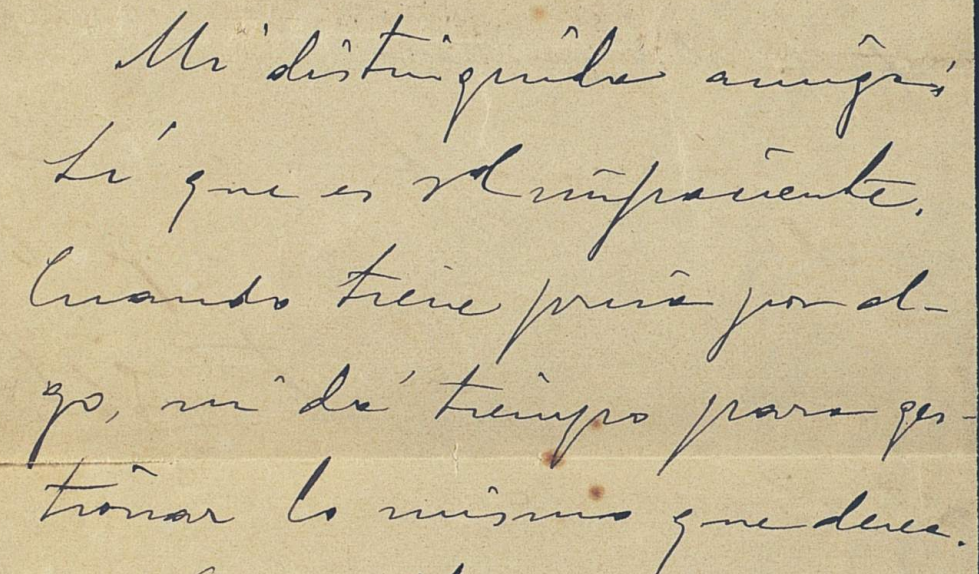 Mi distinguida amiga:
Sí que es Vd impaciente.
Cuando tiene prisa por al-
go, ni dá tiempo para ges-
tionar lo mismo que desea.